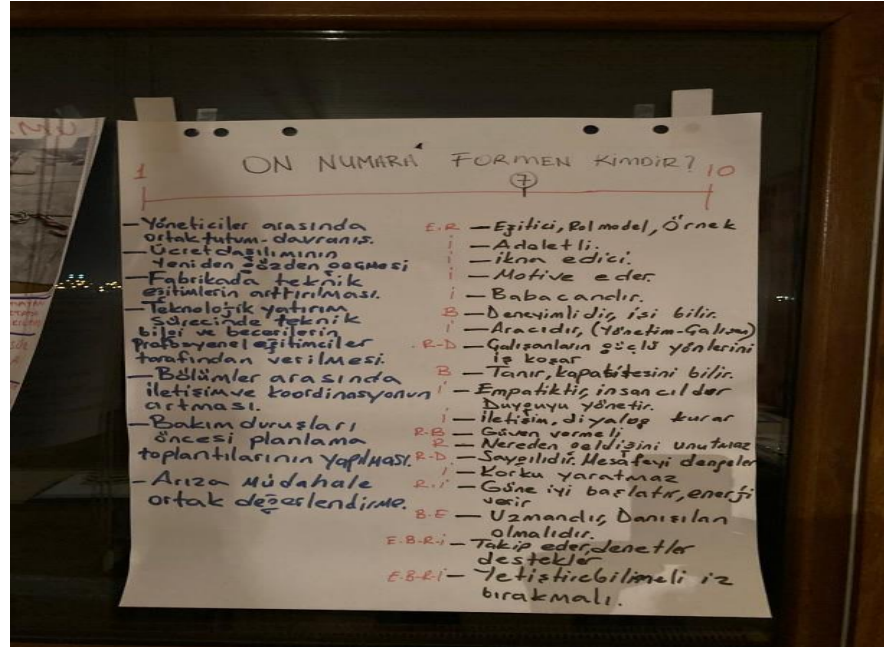 ON NUMARA FORMEN KİMDİR?
1
7
10
— Yöneticiler arasında
ortak tutum-davranış.
— Ücret dağılımının
Yeniden gözden geçmesi
— Fabrikada teknik
eğitimlerin arttırılması.
— Teknolojik yatırım
sürecinde teknik
bilgi ve becerilerin
profesyonel eğitimciler
tarafından verilmesi.
— Bölümler arasında
iletişim ve koordinasyonun
artması.
— Bakım duruşları
öncesi planlama
toplantılarının yapılması.
— Arıza Müdahale
ortak değerlendirme.
E.R — Eğitici, Rol model, Örnek
i — Adaletli.
i — ikna edici.
i — Motive eder.
i — Babacandır.
B — Deneyimlidir, işi bilir.
i — Aracıdır, (Yönetim-Çalışan)
R-D — Çalışanların güçlü yönlerini
iş koşar
B — Tanır, kapasitesini bilir.
i — Empatiktir, insancıldır
Duyguyu yönetir.
i — iletişim, diyalog kurar
R-B — Güven vermeli
R — Nereden geldiğini unutmaz
R-D — Saygılıdır. Mesafeyi dengeler
i — Korku yaratmaz
R-i — Güne iyi başlatır, enerji
verir
B-E — Uzmandır, Danışılan
olmalıdır.
E-B-R-i — Takip eder, denetler
destekler
E-B-R-i — Yetiştirebilmeli iz
bırakmalı.